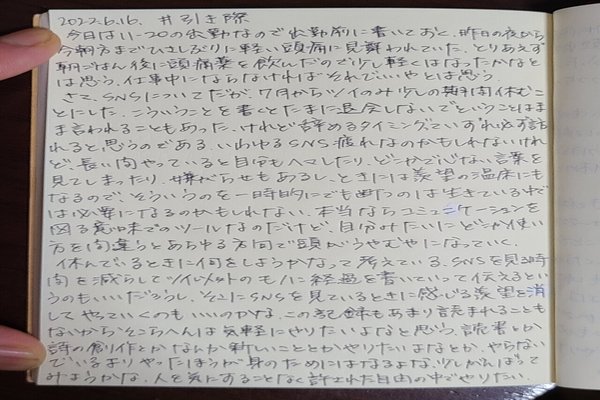 2022.6.16. #引き際
今日は11-20の出勤なので出勤前に書いておく。昨日の夜から
今朝方までひさしぶりに軽い頭痛に見舞われていた。とりあえず
朝ごはん後に頭痛薬を飲んだので少し軽くはなったかなと
は思う。仕事中にならなければそれでいいやとは思う。
さて、SNSについてだが、7月からツイのみ少しの期間休むこ
とにした。こういうことを書くとたまに退会しないでということはま
ま言われることもあった。けれど辞めるタイミングでいずれ必ず訪
れると思うのである。いわゆるSNS疲れなのかもしれないけれ
ど、長い間やっていると自分もヘマしたり、どこかで汚い言葉を
見てしまったり、嫌がらせもあるし、ときには羨望の温床にも
なるので、そういうのを一時的にでも断つのは生きている中で
は必要になるのかもしれない。本当ならコミュニケーションを
図る意味でのツールなのだけど、自分みたいにどこか使い
方を間違うとあらゆる方向で頭がうやむやになっていく。
休んでいるときに何をしようかなって考えている。SNSを見る時
間を減らしてツイメットのモノに経過を書いていって伝えるとい
うのもいいだろうし、それにSNSを見ているときに感じる羨望を消
してやっていくのもいいのかな。この記録もあまり読まれることも
ないからそこらへんは気軽にやりたいよなと思う。読書とか
詩の創作とかなんか新しいこととかやりたいよなとか。やらない
でいるよりやったほうが身のためにはなるよな。少しがんばって
みようかな。人を気にすることなく許された自由の中でやりたい。